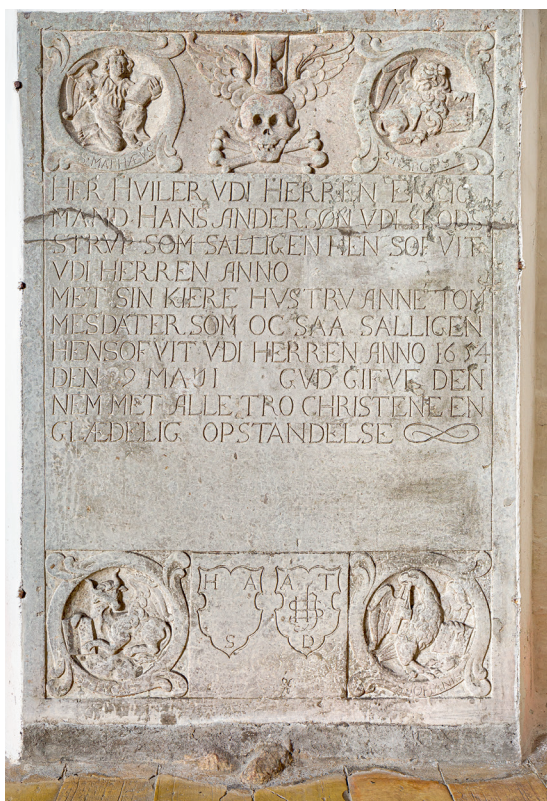 S MATHÆVS
HER HVILER VDI HERREN
MAND HANS ANDERSØN VDI
STRVP SOM SALLIGEN HEN SOF VIT
VDI HERREN ANNO
MET SIN KIÆRE HVSTRV ANNE TOM
MESDATER SOM OC SAA SALLIGEN
HENSOF VIT VDI HERREN ANNO 1654
DEN 29 MAIJI GVD GIFVE DEN
NEM MET ALLE TRO CHRISTENE EN
GLÆDELIG OPSTANDELSE
H A A T
S D